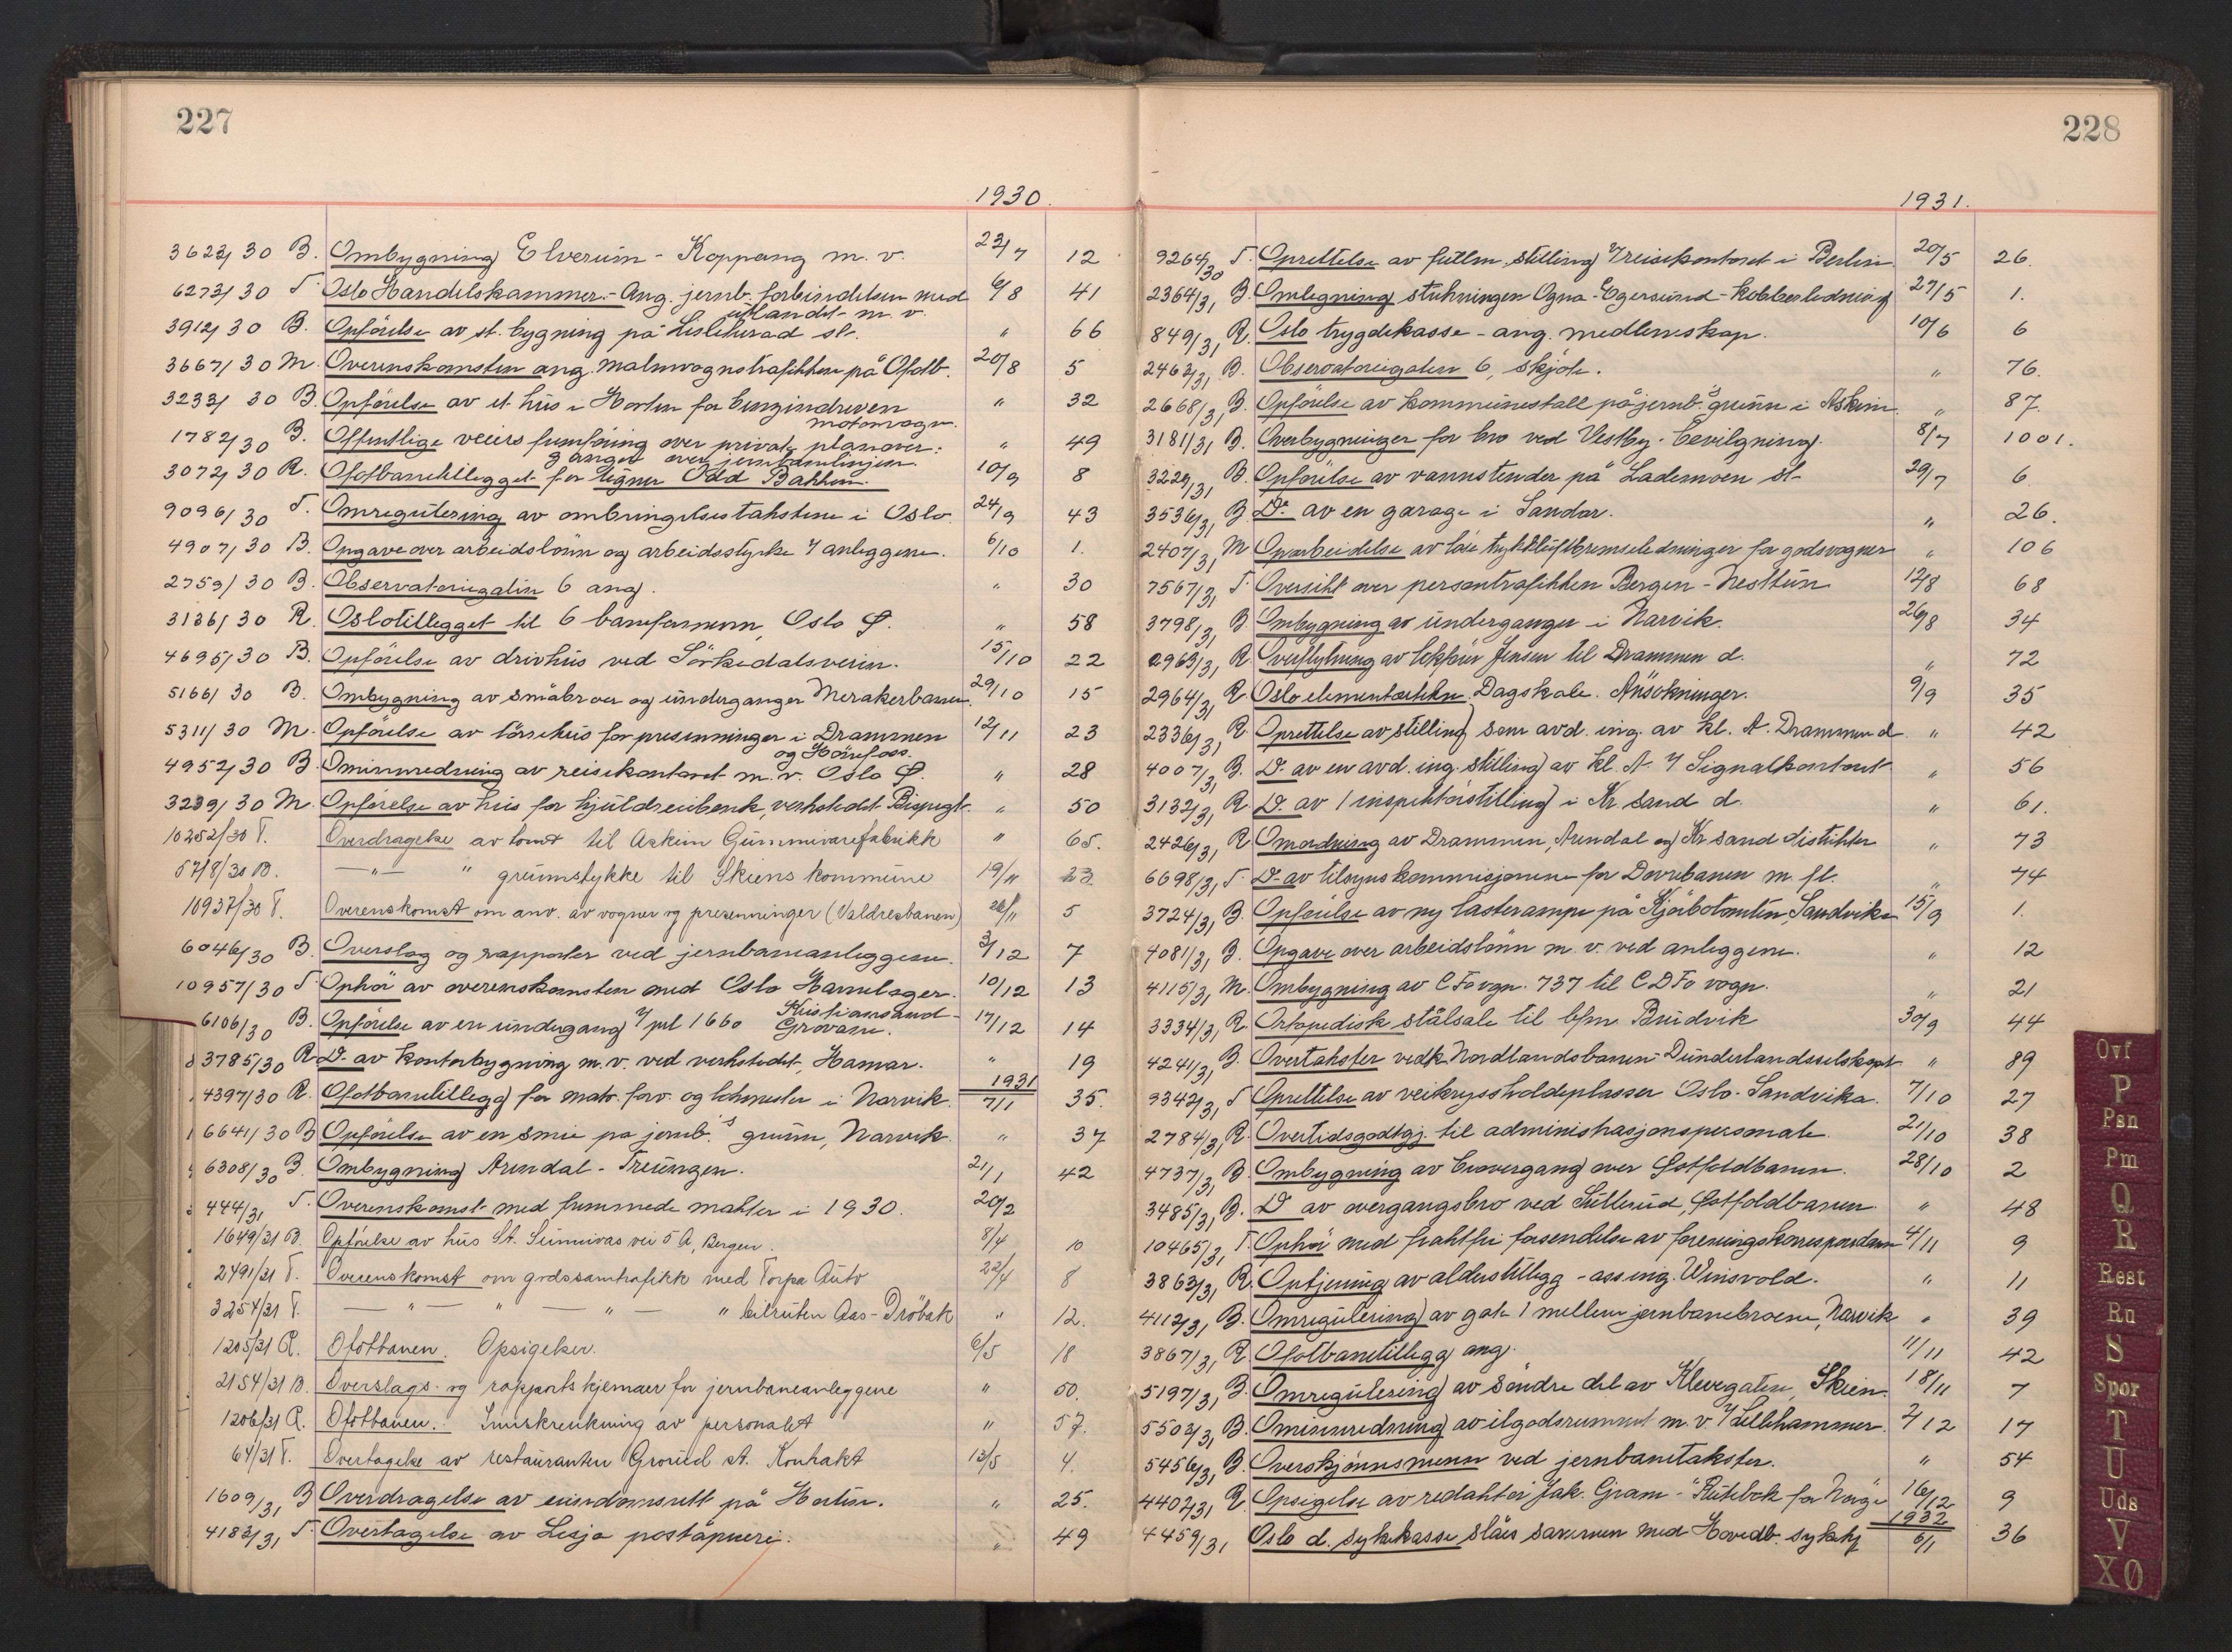 227
1930.
3622/30 B. Ombygning Elverum - Koppang m. v. 23/7 12
6273/30 T Oslo Handelskammer. - Ang. jernb. forbindelsen med 6/8 41
utlandet m. v.
3912/30 B. Opförelse av st. bygning på st. " 66
3667/30 M Overenskomsten ang. malmvognstrafikken på Ofotb. 20/8 5
3233/30 B. Opförelse av et hus i Horten for benzindreven " 32
motorvogn.
1782/30 B. Offentlige veiers fremföring over private planover- " 49
ganger over jernbanelinjen.
3072/30 R. Ofotbanetillegget for tegner Odd Bakken. 10/9 8
9096/30 T. Omregulering av ombringelsestakstene i Oslo 24/9 43
4907/30 B. Opgave over arbeidslönn og arbeidsstyrke v/ anleggene. 6/10 1.
2759/30 B. Observatoriegaten 6 ang. " 30
3136/30 R. Oslotillegget til 6 baneformenn, Oslo Ø. " 58
4695/30 B. Opförelse av drivhus ved Sörkedalsveien. 15/10 22
5166/30 B. Ombygning av småbroer og underganger Merakerbanen. 29/10 15
5311/30 M. Opförelse av törrehus for presenninger i Drammen 12/11 23
og Hönefoss.
4952/30 B. Ominnredning av reisekontoret m. v. Oslo Ø. " 28
3239/30 M. Opförelse av hus for hjuldreiebenk, verkstedet Bispegt. " 50
10252/30 T. Overdragelse av tomt til Askim Gummivarefabrikk " 65.
5718/30 B. —"— " grunnstykke til Skiens kommune 19/11 23
10937/30 T. Overenskomst om anv. av vogner og presenninger (Valdresbanen) 26/11 5
6046/30 B. Overslag og rapporter ved jernbaneanleggene. 3/12 7
10957/30 T Ophör av overenskomsten med Oslo Havnelager. 10/12 13
6106/30 B. Opförelse av en undergang v/ pel 1660 Kristiansand - Grovane. 17/12 14
3785/30 R Do av kontorbygning m. v. ved verkstedet, Hamar. " 19
1931
4397/30 R. Ofotbanetillegg for matr. forv. og lokmester i Narvik. 7/1 35.
6641/30 B Opförelse av en smie på jernb.s grunn, Narvik " 37
6308/30 B. Ombygning Arendal - Treungen. 21/1 42
444/31 T. Overenskomst med fremmede makter i 1930. 20/2
1649/31 B. Opförelse av hus St. Sunnivas vei 5 A, Bergen. 8/4 10
2491/31 T. Overenskomst om godssamtrafikk med Torpa Auto 22/4 8
3254/31 T. — " — " — " — " bilruten Aas - Dröbak " 12.
1205/31 R. Ofotbanen. Opsigelser. 6/5 18
2154/31 B. Overslags- og rapportskjemaer for jernbaneanleggene " 50.
1206/31 R. Ofotbanen. Innskrenkning av personalet " 57.
64/31 T. Overtagelse av restauranten Grorud st. Kontrakt 13/5 4.
1609/31 B Overdragelse av eiendomsrett på Horten. " 25.
4183/31 T. Overtagelse av Lesja poståpneri. " 49
228
1931.
9264/30 T. Oprettelse av fullm. stilling v/ reisekontoret i Berlin 20/5 26.
2364/31 B. Omlegning strekningen Ogna - Egersund - Kobberledning 27/5 1.
849/31 R. Oslo trygdekasse - ang. medlemskap. 10/6 6
2463/31 B. Observatoriegaten 6, skjöte. " 76.
2668/31 B. Opförelse av kommunestall på jernb.s grunn i Askim " 87.
3181/31 B. Overbygninger for bro ved Vestby. bevilgning. 8/7 1001.
3229/31 B Opförelse av vannstender på Lademoen st 29/7 6
3536/31 B Do av en garage i Sandar. " 26.
2407/31 M Oparbeidelse av löse trykkluftbremseledninger for godsvogner " 106
7567/31 T Oversikt over persontrafikken Bergen - Nesttun 12/8 68
3798/31 B Ombygning av underganger i Narvik. 26/8 34
2963/31 R Overflytning av lokförer Jensen til Drammen d. " 72
2964/31 R Oslo elementærtekn. Dagskole. Ansökninger. 9/9 35
2336/31 R Oprettelse av stilling som avd. ing. av kl. A. Drammen d " 42
4007/31 B. Do av en avd. ing. stilling av kl. A. v/ Signalkontoret " 56
3132/31 R. Do av 1 inspektörstilling i Kr. sand d. " 61.
2426/31 R Omordning av Drammen, Arendal og Kr. sand distrikter " 73
6698/31 T. Do av tilsynskommisjonene for Dovrebanen m. fl. " 74
3724/31 B. Opförelse av ny lasterampe på Kjörbotomten, Sandvika 15/9 1.
4081/31 B. Opgave over arbeidslönn m. v. ved anleggene. " 12
4115/31 M. Ombygning av CFo vogn. 737 til CDFo vogn. " 21
3334/31 R. Ortopedisk stålsåle til bfm. Brudvik 30/9 44
4241/31 B. Overtakster vedk. Nordlandsbanen - Dunderlandsselskapet " 89
9342/31 T Oprettelse av veikryssholdeplasser Oslo - Sandvika. 7/10 27
2784/31 R. Overtidsgodtgj. til administrasjonspersonale. 21/10 38
4737/31 B. Ombygning av broovergang over Østfoldbanen. 28/10 2
3485/31 B. Do av overgangsbro ved Sütterud, Østfoldbanen " 48
10465/31 T. Ophör med fraktfri forsendelse av foreningskorrespondanse 4/11 9
3863/31 R. Optjening av alderstillegg - ass. ing. Winsvold. " 11
4112/31 B. Omregulering av gate 1 mellem jernbanebroene, Narvik " 39
3867/31 R. Ofotbanetillegg ang. 11/11 42
5197/31 B. Omregulering av söndre del av Klevegaten, Skien. 18/11 7
5503/31 B. Ominnredning av ilgodsrummet m. v. v/ Lillehammer. 2/12 17
5456/31 B. Overskjönnsmenn ved jernbanetakster. " 54
4402/31 R. Opsigelse av redaktör Jak. Gram - "Rutebok for Norge" 16/12 9
1932
4459/31 Oslo d. sykekasse slåes sammen med Hovedb. sykekj 6/1 36
Ovf
P
Psn
Pm
Q
R
Rest
Ru
S
Spor
T
U
Uds
V
XØ